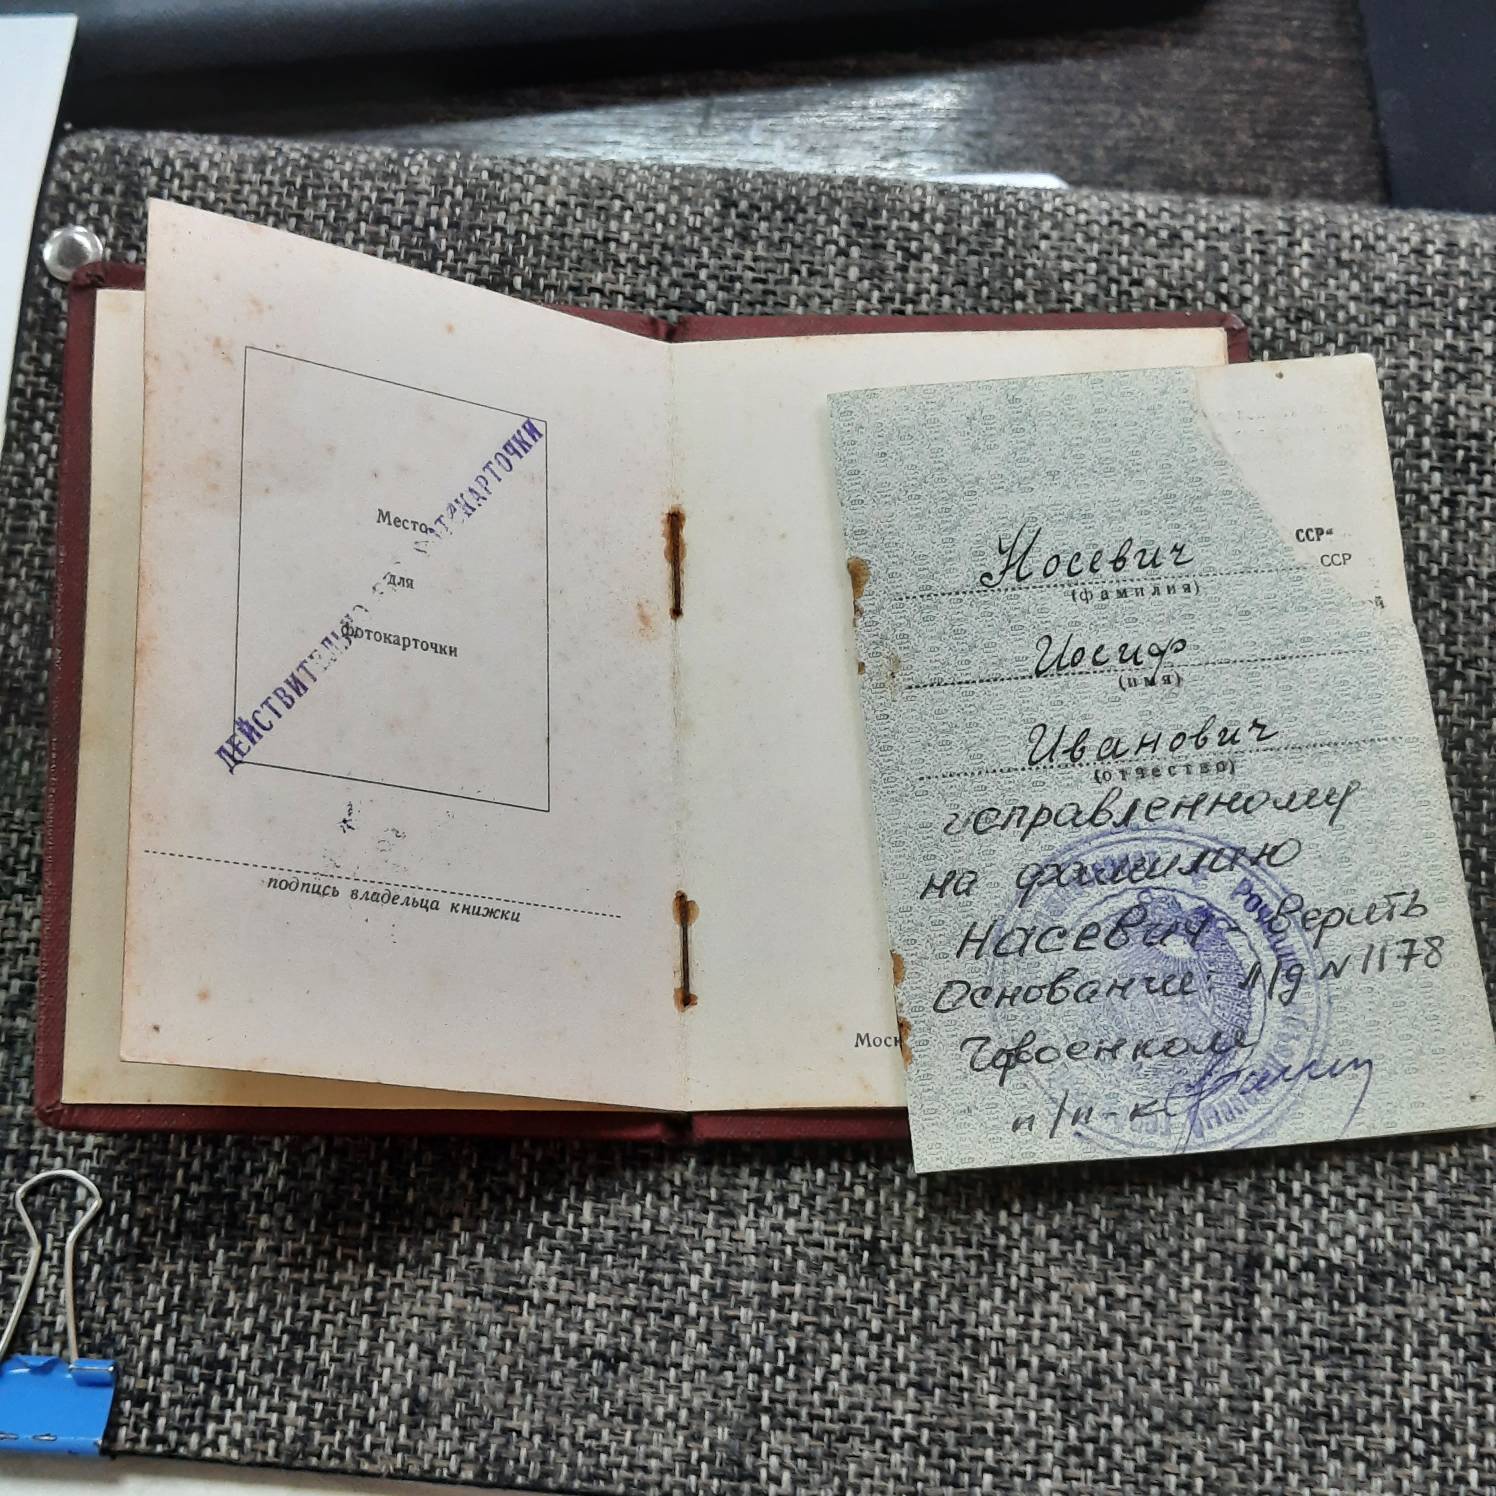 Место
для
фотокарточки
ДЕЙСТВИТЕЛЬНО БЕЗ ФОТОКАРТОЧКИ
подпись владельца книжки
Моск
ССР"
ССР
ой
Носевич
(фамилия)
Иосиф
(имя)
Иванович
(отчество)
исправленному
на фамилию
Насевич - верить
Основание: л/д N 1178
Горвоенком
п/п-к